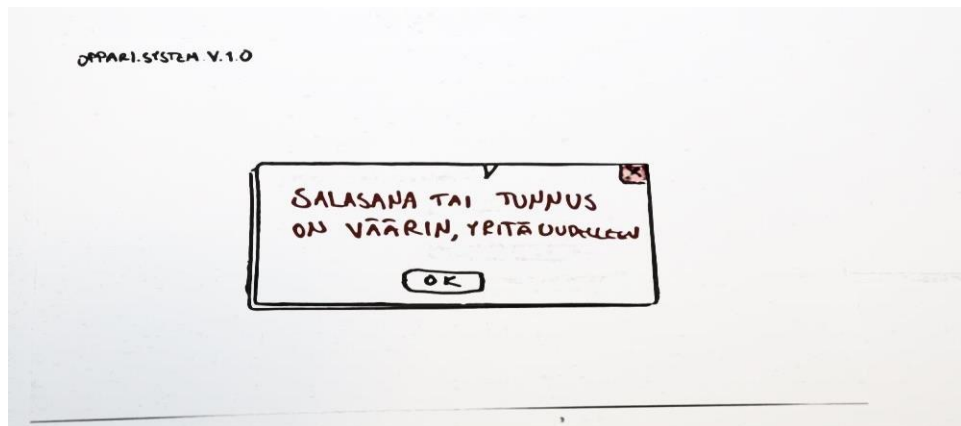 OPPARI.SYSTEM.V.1.0
X
SALASANA TAI TUNNUS
ON VÄÄRIN, YRITÄ UUDELLEEN
OK